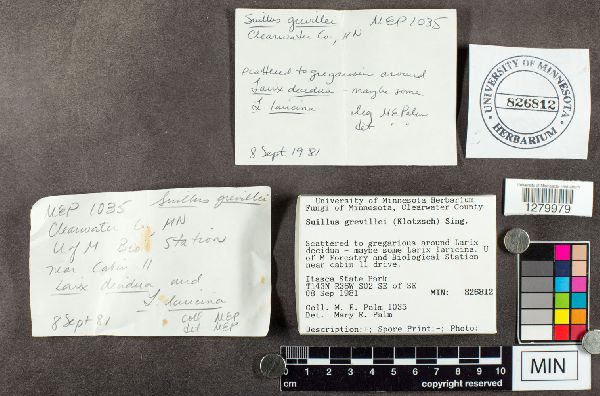 Suillus grevillei MEP 1035
Clearwater Co., MN
scattered to gregarious around
Larix decidua - maybe some
L laricina leg MEPalm
det " "
8 Sept 1981
UNIVERSITY OF MINNESOTA
826812
HERBARIUM
University of Minnesota Herbarium
1279979
MEP 1035 Suillus grevillei
Clearwater Co, MN
U of M Biol Station
near Cabin 11
Larix decidua and
L laricina
8 Sept 81 coll MEP
det MEP
University of Minnesota Herbarium
Fungi of Minnesota, Clearwater County
Suillus grevillei (Klotzsch) Sing.
Scattered to gregarious around Larix
decidua - maybe some Larix laricina. U
of M Forestry and Biological Station
near cabin 11 drive.
Itasca State Park
T143N R36W S02 SE of SE
08 Sep 1981 MIN: 826812
Coll. M. E. Palm 1035
Det. Mary E. Palm
Description:-; Spore Print:-; Photo:
0 1 2 3 4 5 6 7 8 9 10
cm copyright reserved
MIN